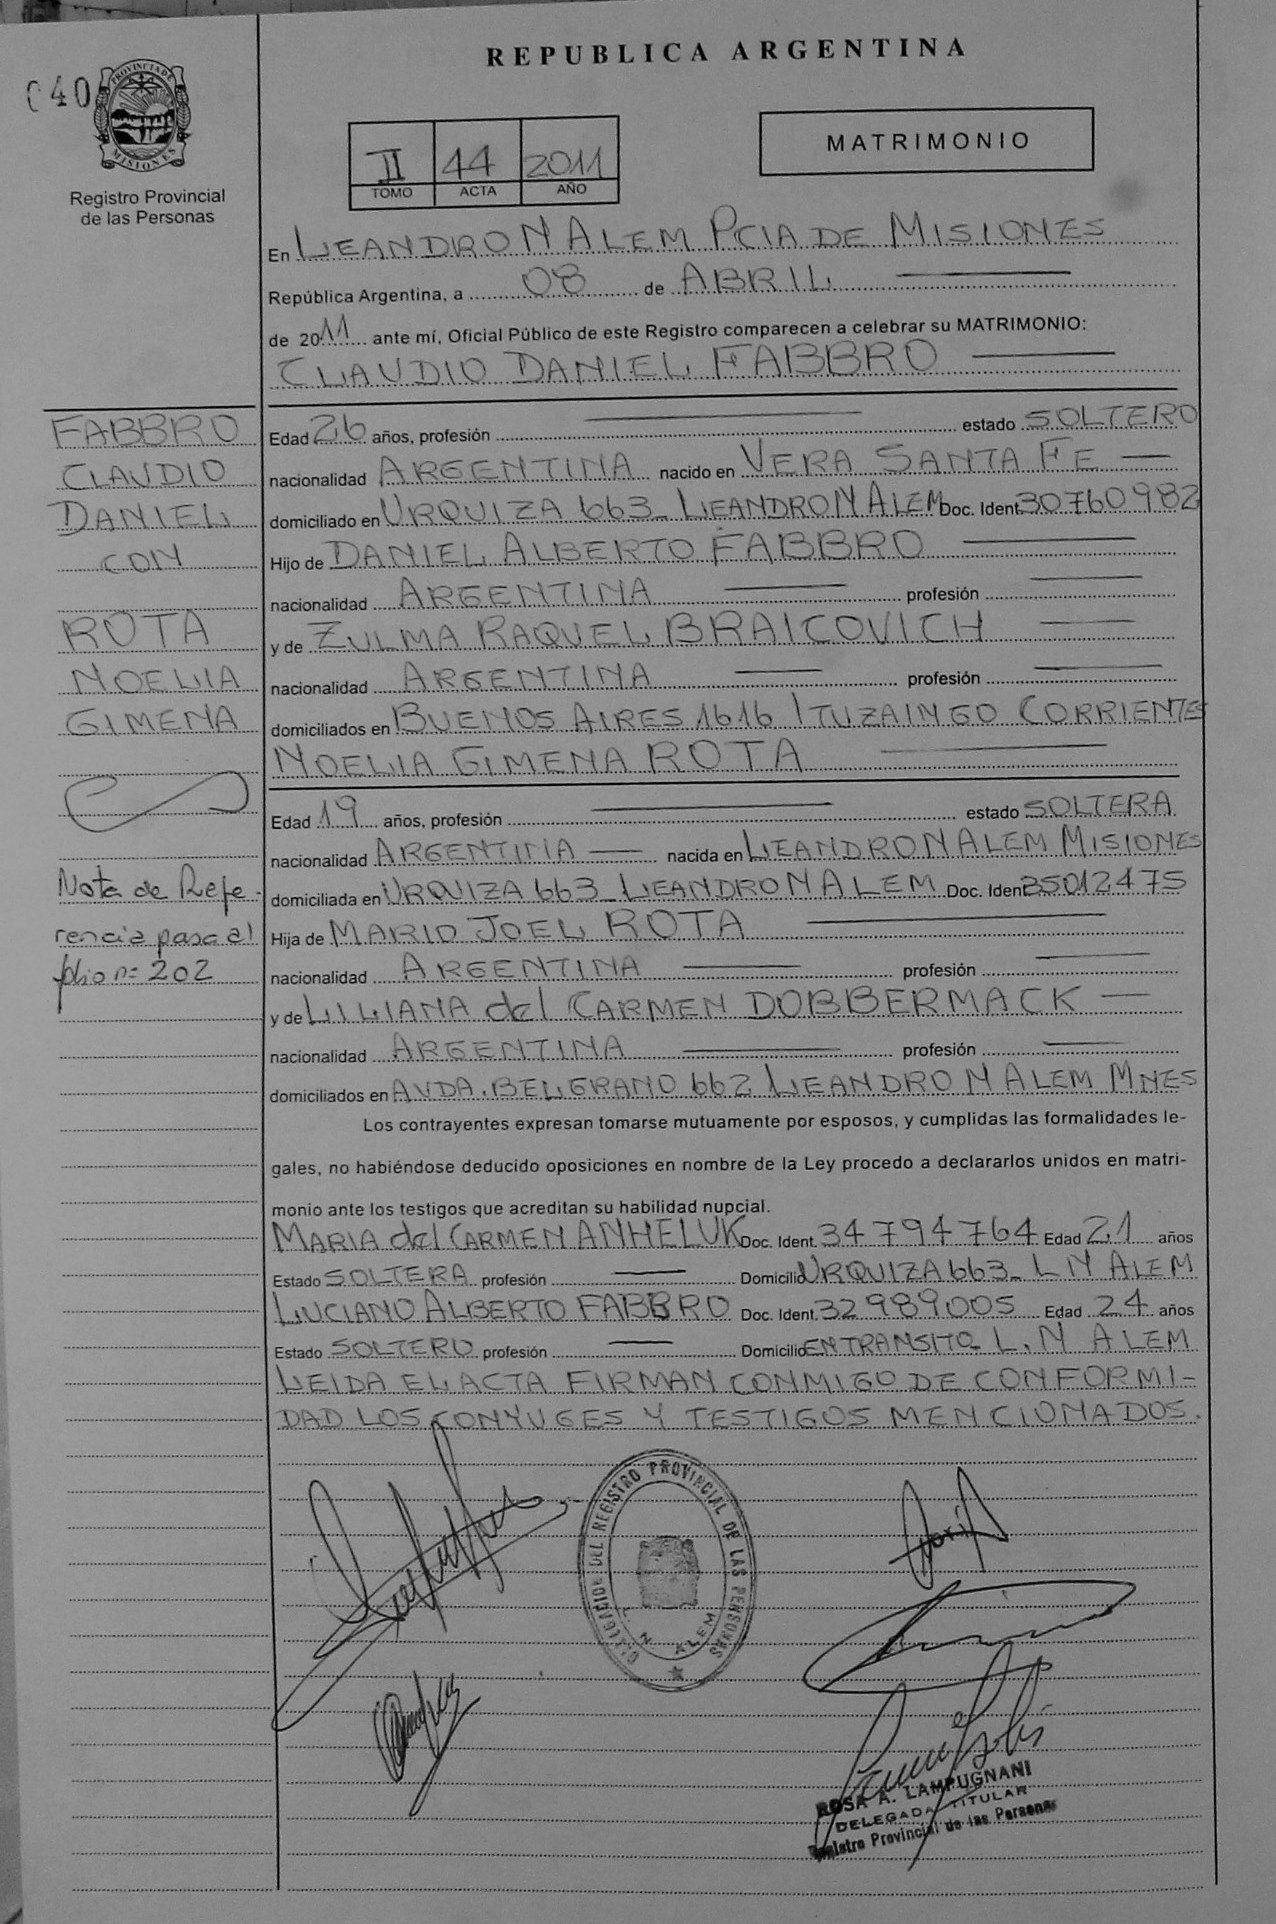 REPUBLICA ARGENTINA
040
PROVINCIA DE MISIONES
Registro Provincial
de las Personas
II 44 2011
TOMO ACTA AÑO
MATRIMONIO
En LEANDRO N ALEM PCIA DE MISIONES
República Argentina, a 08 de ABRIL
de 2011 ante mí, Oficial Público de este Registro comparecen a celebrar su MATRIMONIO:
CLAUDIO DANIEL FABBRO
FABBRO
CLAUDIO
DANIEL
CON
ROTA
NOELIA
GIMENA
Nota de Refe-
rencia pasa al
folio nº 202
Edad 26 años, profesión estado SOLTERO
nacionalidad ARGENTINA nacido en VERA SANTA FE
domiciliado en URQUIZA 663_ LEANDRO N ALEM Doc. Ident. 30760982
Hijo de DANIEL ALBERTO FABBRO
nacionalidad ARGENTINA profesión
y de ZULMA RAQUEL BRAICOVICH
nacionalidad ARGENTINA profesión
domiciliados en BUENOS AIRES 1616 ITUZAINGO CORRIENTES
NOELIA GIMENA ROTA
Edad 19 años, profesión estado SOLTERA
nacionalidad ARGENTINA nacida en LEANDRO N ALEM MISIONES
domiciliada en URQUIZA 663_ LEANDRO N ALEM Doc. Ident. 35012475
Hija de MARIO JOEL ROTA
nacionalidad ARGENTINA profesión
y de LILIANA del CARMEN DOBBERMACK
nacionalidad ARGENTINA profesión
domiciliados en AVDA. BELGRANO 662 LEANDRO N ALEM MNES
Los contrayentes expresan tomarse mutuamente por esposos, y cumplidas las formalidades le-
gales, no habiéndose deducido oposiciones en nombre de la Ley procedo a declararlos unidos en matri-
monio ante los testigos que acreditan su habilidad nupcial.
MARIA del CARMEN ANHELUK Doc. Ident. 34794764 Edad 21 años
Estado SOLTERA profesión Domicilio URQUIZA 663_ L N ALEM
LUCIANO ALBERTO FABBRO Doc. Ident. 32989005 Edad 24 años
Estado SOLTERO profesión Domicilio EN TRANSITO L. N ALEM
LEIDA EL ACTA FIRMAN CONMIGO DE CONFORMI-
DAD LOS CONYUGES Y TESTIGOS MENCIONADOS.
DELEGACION DEL REGISTRO PROVINCIAL DE LAS PERSONAS
L. N. ALEM
ROSA A. LAMPUGNANI
DELEGADA TITULAR
Registro Provincial de las Personas